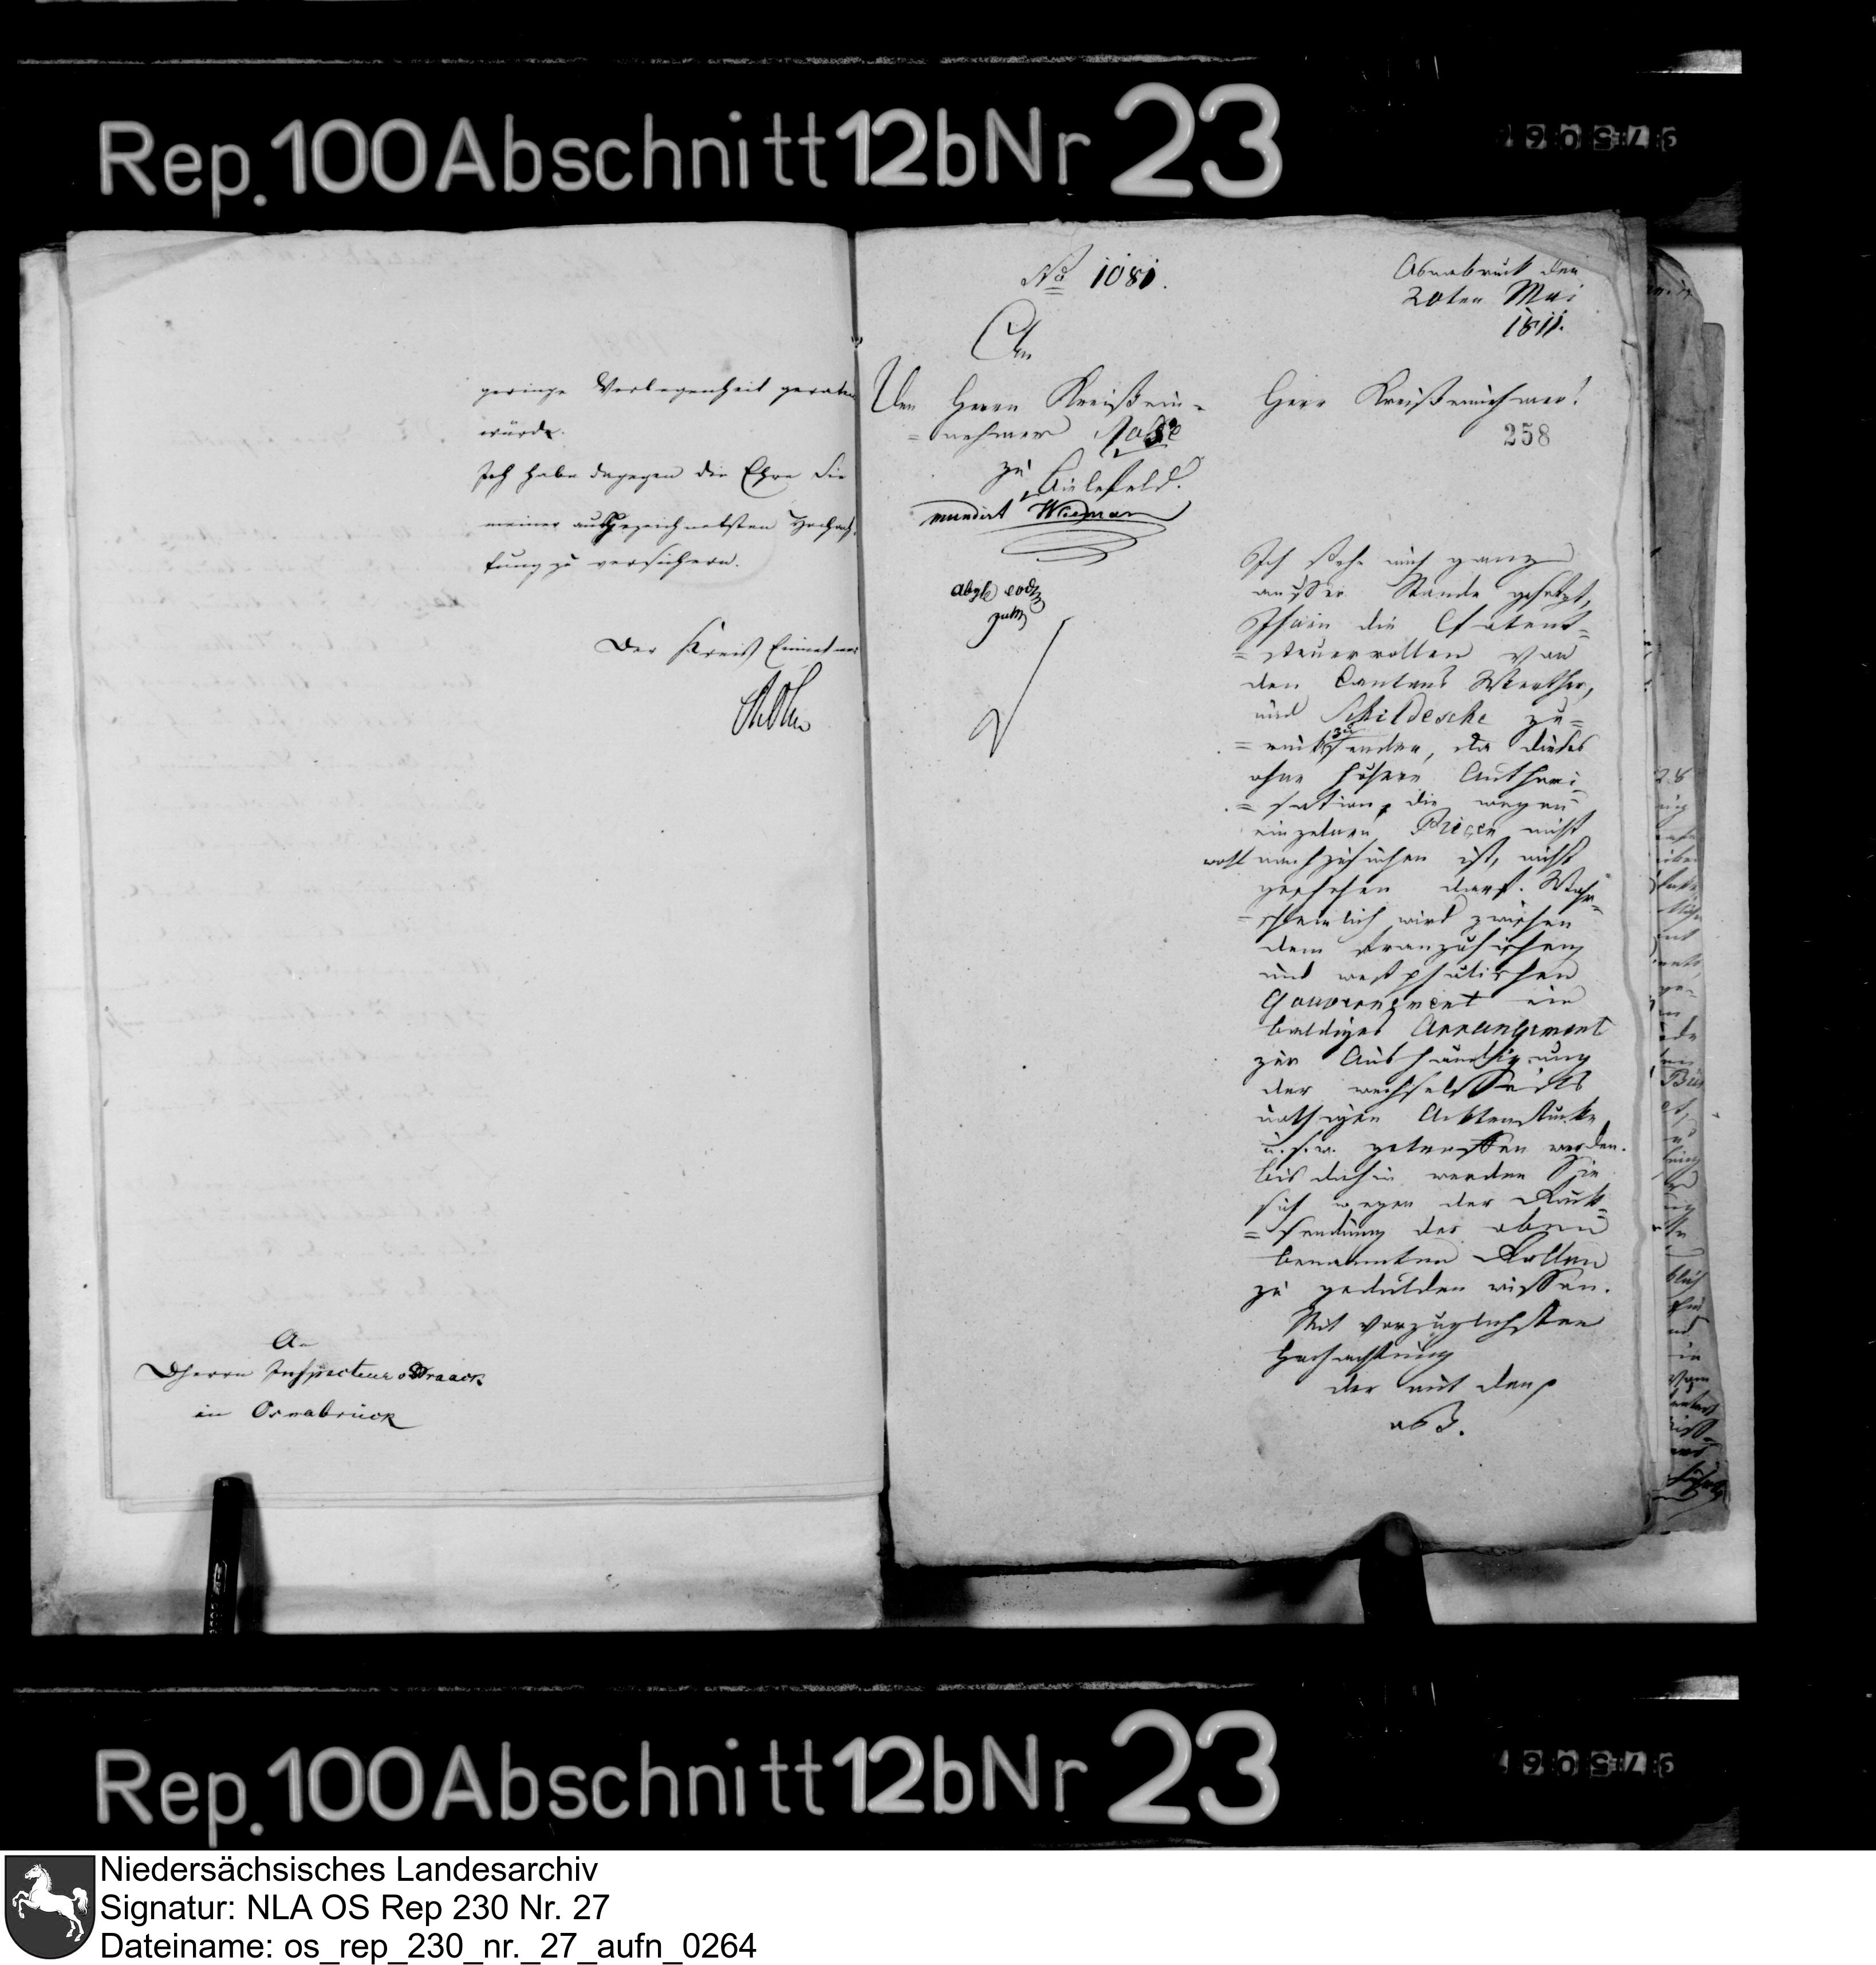 Rep. 100 Abschnitt 12b Nr 23
geringe Verlegenheit geraten
würde.
Ich habe dagegen die Ehre Sie
meiner ausgezeichnetsten Hochach,
tung zu versichern.
Der Kreis Einnehmer
An
Herrn Inspecteur Draack
in Osnabrück
No 1081.
Osnabruck den
20ten Mai
1811.
An
Den Herrn Kreißein-
=nehmer
zu Bielefeld.
mundirt Wiemann
Herr Kreißeinnehmer!
258
Ich sehe mich ganz
ausser Stande gesetzt,
Ihnen die Patent-
=steuerrollen von
den Cantons Werther,
und Schildesche zu-
=rückzusenden, da dieses
ohne höhere Authori-
=sation, die wegen
einzelnen Piecen nicht
wohl nachzusuchen ist, nicht
geschehen darf. Wahr-
=scheinlich wird zwischen
dem französischen
und westphälischen
Gouvernement ein
baldiges Arrangement
zur Aushändigung
der wechselseits
nöthigen Acktenstücke
u.s.w. getroffen werden.
bis dahin werden Sie
sich wegen der Rück-
=sendung der oben
benannten Rollen
zu gedulden wissen.
Mit vorzüglichsten
Hochachtung
der mit dem
Rep. 100 Abschnitt 12b Nr 23
Niedersächsisches Landesarchiv
Signatur: NLA OS Rep 230 Nr. 27
Dateiname: os_rep_230_nr._27_aufn_0264